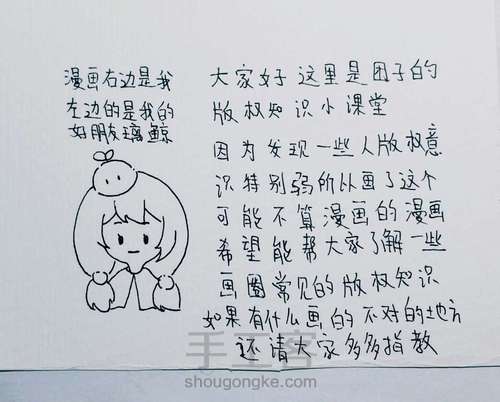 漫画右边是我
左边的是我的
好朋友璃鲸
大家好 这里是团子的
版权知识小课堂
因为发现一些人版权意
识特别弱所以画了这个
可能不算漫画的漫画
希望能帮大家了解一些
画圈常见的版权知识
如果有什么画的不对的地方
还请大家多多指教
手工客
shougongke.com